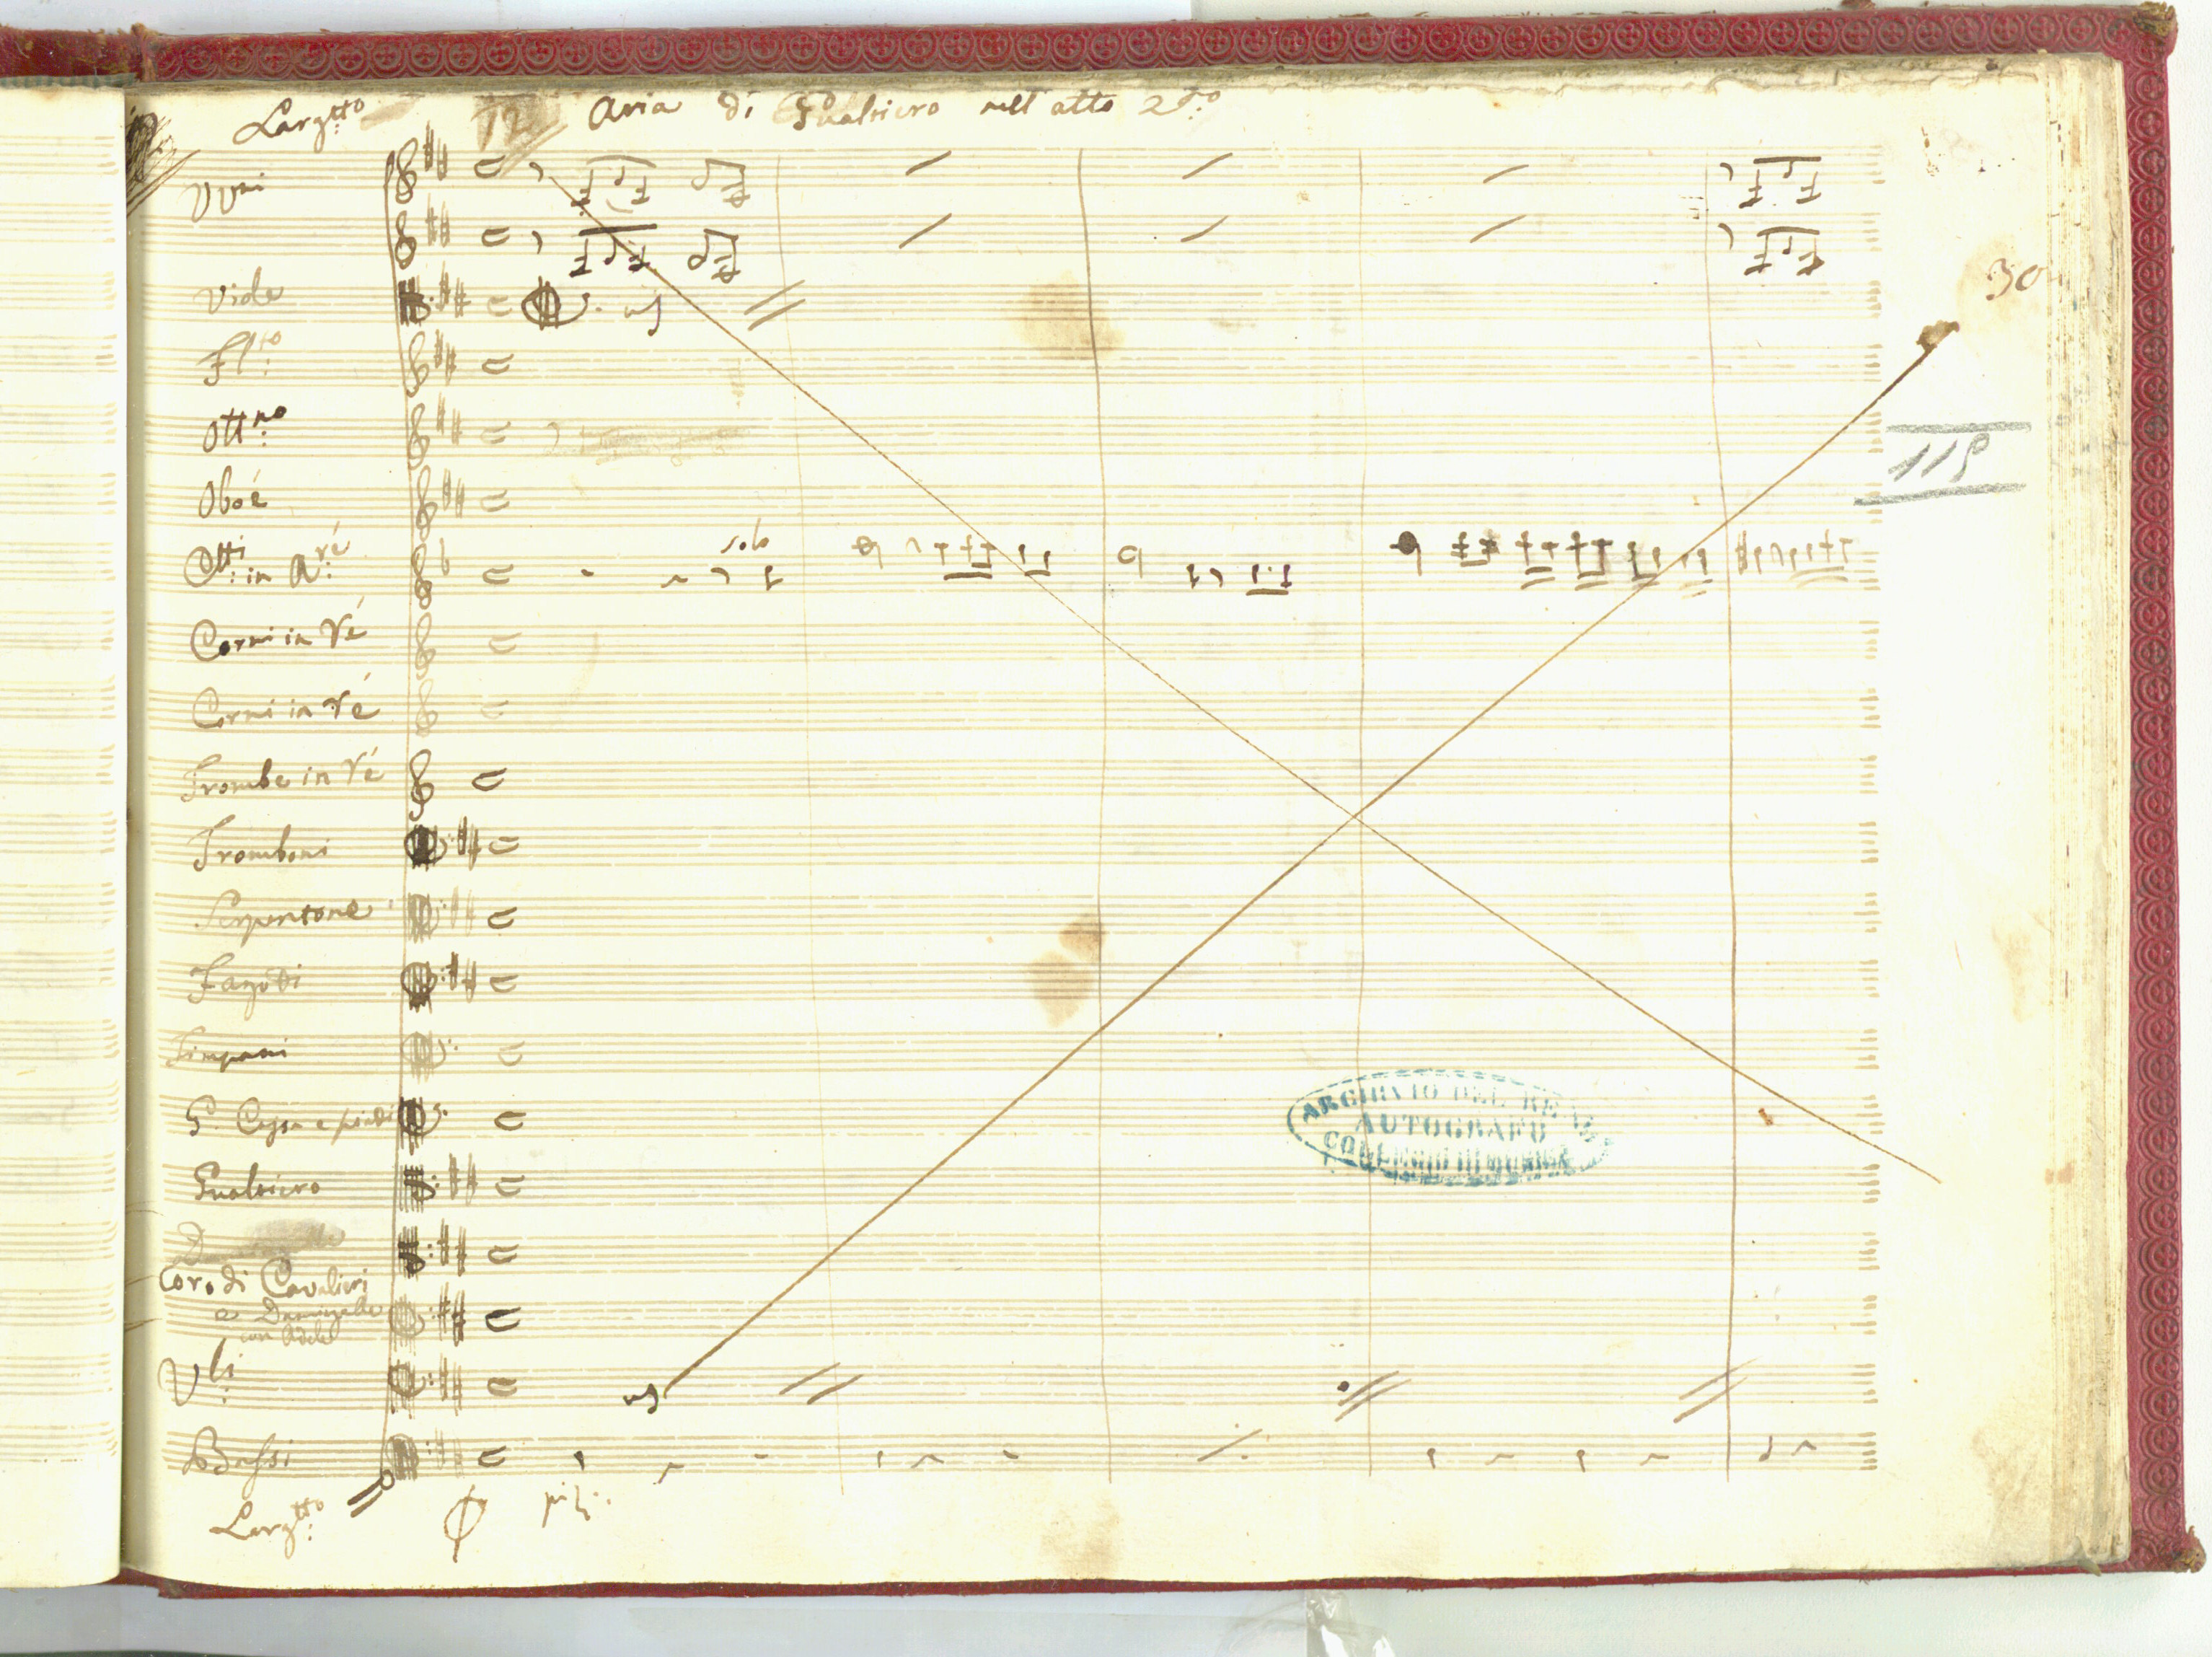 Larg:tto 12 Aria di Gualtiero nell'atto 2do
VVni
Viole
Fl:to
Ott:no
Oboé
Cl:tti in A:ré
solo
Corni in ré
Corni in ré
Trombe in ré
Tromboni
Serpentone
Fagotti
Timpani
G. Cassa e piatti
Gualtiero
Coro di Cavalieri
e Damigelle
con Adele
V:li
Bassi
Larg:tto
30
119
ARCHIVIO DEL REAL
AUTOGRAFO
COLLEGIO DI MUSICA